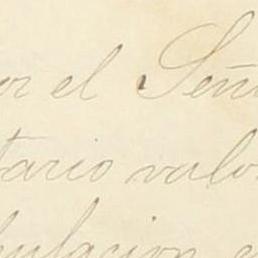 or el Seño
tario valo
pulacion e